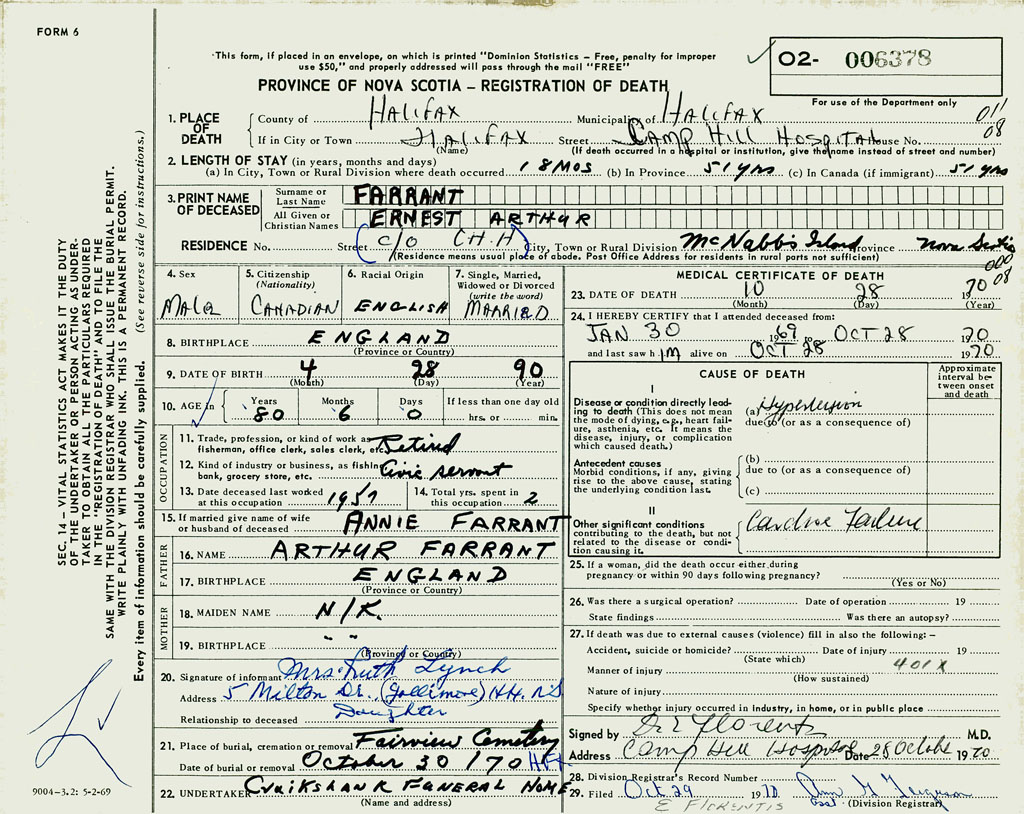 FORM 6
This form, if placed in an envelope, on which is printed "Dominion Statistics – Free, penalty for improper
use $50," and properly addressed will pass through the mail "FREE"
O2- 006378
PROVINCE OF NOVA SCOTIA – REGISTRATION OF DEATH
For use of the Department only
1. PLACE OF DEATH
County of HALIFAX Municipality of HALIFAX 011
If in City or Town HALIFAX Street CAMP HILL HOSPITAL House No. 08
(Name) (If death occurred in a hospital or institution, give the name instead of street and number)
2. LENGTH OF STAY (in years, months and days)
(a) In City, Town or Rural Division where death occurred 18 MOS (b) In Province 51 yrs (c) In Canada (if immigrant) 51 yrs
3. PRINT NAME OF DECEASED
Surname or Last Name FARRANT
All Given or Christian Names ERNEST ARTHUR
RESIDENCE No. Street (c/o C.H.H) City, Town or Rural Division McNabb's Island Province Nova Scotia
(Residence means usual place of abode. Post Office Address for residents in rural parts not sufficient)
000
08
4. Sex
Male
5. Citizenship
(Nationality)
CANADIAN
6. Racial Origin
ENGLISH
7. Single, Married,
Widowed or Divorced
(write the word)
MARRIED
8. BIRTHPLACE ENGLAND
(Province or Country)
9. DATE OF BIRTH 4 28 90
(Month) (Day) (Year)
10. AGE in
Years Months Days If less than one day old
80 6 0 hrs. or min.
OCCUPATION
11. Trade, profession, or kind of work as
fisherman, office clerk, sales clerk, etc. Retired
12. Kind of industry or business, as fishing
bank, grocery store, etc. Civic servant
13. Date deceased last worked
at this occupation 1957
14. Total yrs. spent in
this occupation 2
15. If married give name of wife
or husband of deceased ANNIE FARRANT
FATHER
16. NAME ARTHUR FARRANT
17. BIRTHPLACE ENGLAND
(Province or Country)
MOTHER
18. MAIDEN NAME N/K.
19. BIRTHPLACE " "
(Province or Country)
20. Signature of informant Mrs. Ruth Lynch
Address 5 Milton Dr., (Jollimore) Hfx. N.S.
Relationship to deceased Daughter
21. Place of burial, cremation or removal Fairview Cemetery
Date of burial or removal October 30/70 Hfx
22. UNDERTAKER Cruikshank FUNERAL HOME
(Name and address)
MEDICAL CERTIFICATE OF DEATH
23. DATE OF DEATH 10 28 1970
(Month) (Day) (Year)
24. I HEREBY CERTIFY that I attended deceased from:
JAN 30 1969 OCT 28 1970
and last saw him alive on OCT 28 1970
CAUSE OF DEATH
Approximate
interval be-
tween onset
and death
I
Disease or condition directly lead-
ing to death (This does not mean
the mode of dying, e.g., heart fail-
ure, asthenia, etc. It means the
disease, injury, or complication
which caused death.)
(a) Hypertension
due to (or as a consequence of)
Antecedent causes
Morbid conditions, if any, giving
rise to the above cause, stating
the underlying condition last.
(b)
due to (or as a consequence of)
(c)
II
Other significant conditions
contributing to the death, but not
related to the disease or condi-
tion causing it.
Cardiac Failure
25. If a woman, did the death occur either during
pregnancy or within 90 days following pregnancy?
(Yes or No)
26. Was there a surgical operation? Date of operation 19
State findings Was there an autopsy?
27. If death was due to external causes (violence) fill in also the following: –
Accident, suicide or homicide? Date of injury 19
(State which)
Manner of injury 401X
(How sustained)
Nature of injury
Specify whether injury occurred in Industry, in home, or in public place
Signed by M.D.
Address Camp Hill Hospital Date 28 October 1970
28. Division Registrar's Record Number
29. Filed Oct 29 1970
(Division Registrar)
E FLORENTIS
SEC. 14 – VITAL STATISTICS ACT MAKES IT THE DUTY
OF THE UNDERTAKER OR PERSON ACTING AS UNDER-
TAKER TO OBTAIN ALL THE PARTICULARS REQUIRED
IN THE "REGISTRATION OF DEATH" AND TO FILE THE
SAME WITH THE DIVISION REGISTRAR WHO SHALL ISSUE THE BURIAL PERMIT.
WRITE PLAINLY WITH UNFADING INK. THIS IS A PERMANENT RECORD.
Every item of information should be carefully supplied. (See reverse side for instructions.)
9004-3.2: 5-2-69